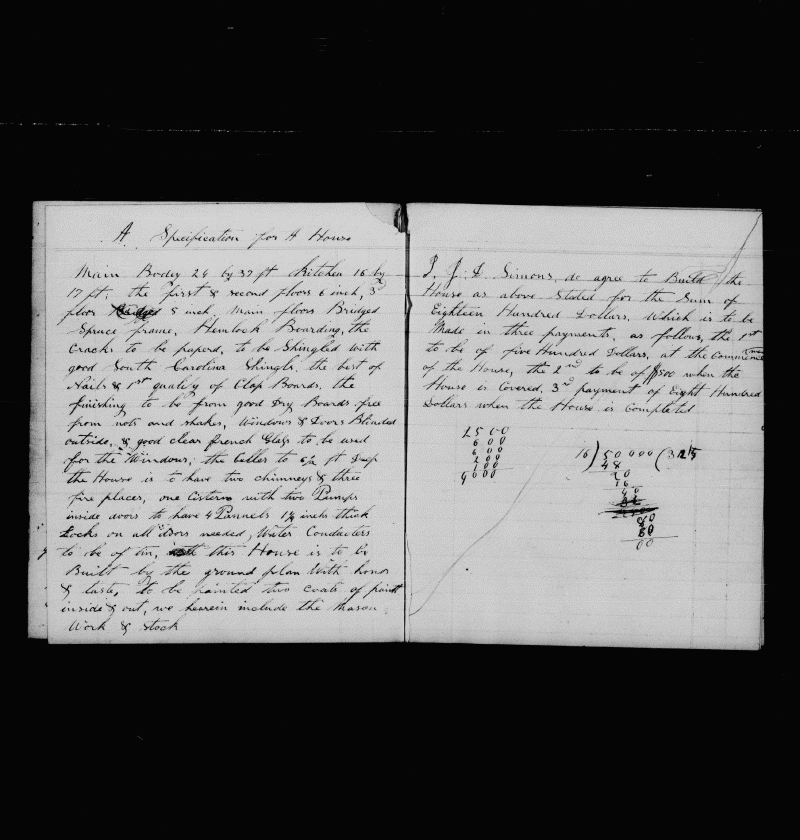 A Specification for A House
Main Body 24 by 37 ft Kitchen 16 by
17 ft; the first & second floors 6 inch, 3d
floor 5 inch, Main floors Bridged
Spruce frame, Hemlock Boarding, the
Cracks to be paperd, to be Shingled with
good South Carolina Shingls, the best of
Nails & 1st quality of Clap Boards, the
finishing to be from good Dry Boards free
from nots and shakes, Windows & Doors Blinded
outside, & good clear french Glass to be used
for the Windows, the Celler to 6½ ft Deep
the House is to have two chimneys & three
fire places, one Cistern with two Pumps
inside doors to have 4 Pannels 1¼ inchs thick
Locks on all doors needed, Water Conducters
to be of tin, this House is to be
Built by the ground plan With honor
& taste, to be painted two coats of paint
inside & out, we herein include the Mason
Work & Stock
I, J. L. Simons, do agree to Build the
House as above Stated for the Sum of
Eighteen Hundred Dollars, Which is to be
Made in three payments, as follows, the 1st
to be of five Hundred Dollars, at the Commencement
of the House, the 2nd to be of $500 when the
House is Covered, 3d payment of Eight Hundred
Dollars when the House is Completed
2500
600
600
200
100
4000
16) 50000 (3125
48
20
16
40
80
80
00